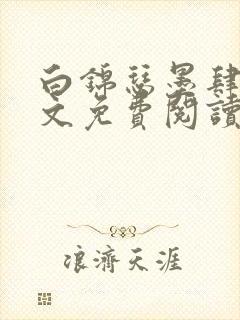 白錦瑟墨肆
文免費閱讀
浪濟天涯